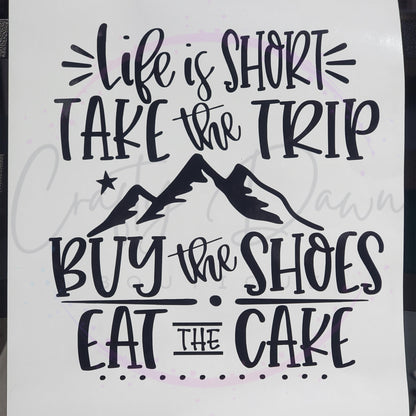 Life is SHORT
TAKE the TRIP
Crafty Dawn
BUY the SHOES
EAT THE CAKE